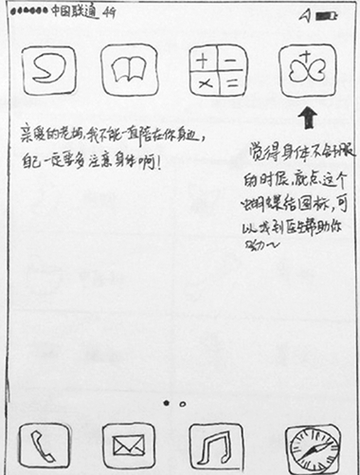 中国联通 4G
+ -
× =
亲爱的老妈,我不能一直陪在你身边,
自己一定要多注意身体啊!
觉得身体不舒服
的时候,就点这个
蝴蝶结图标,可
以找到医生帮助你
呦~